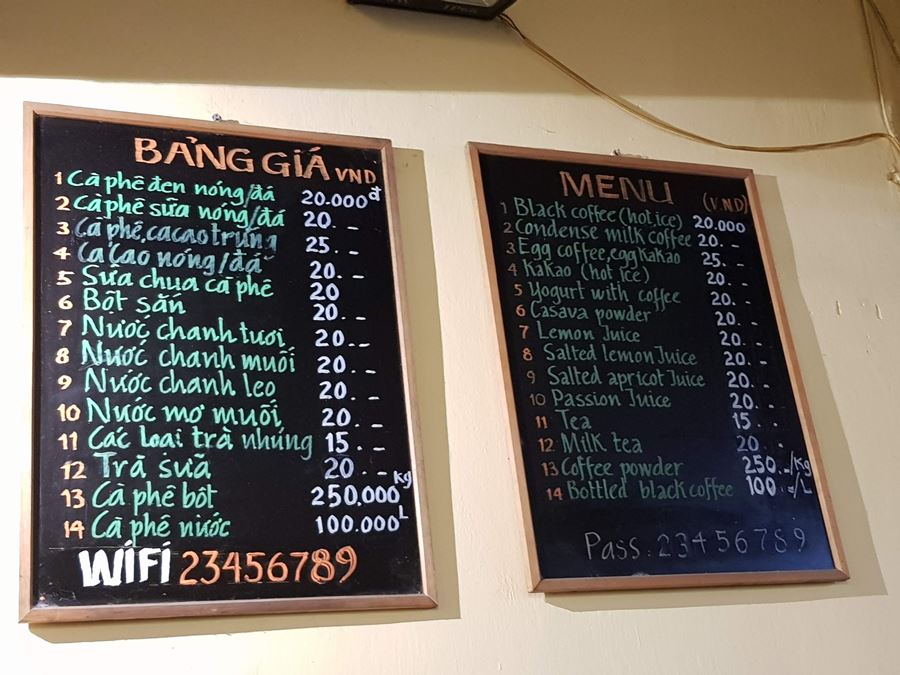 BẢNG GIÁ VND
1 Cà phê đen nóng/đá 20.000đ
2 Cà phê sữa nóng/đá 20. -
3 Cà phê, cacao trứng 25. -
4 Ca Cao nóng/đá 20. -
5 Sữa chua cà phê 20
6 Bột sắn 20. -
7 Nước chanh tươi 20. -
8 Nước chanh muối 20. -
9 Nước chanh leo 20. -
10 Nước mơ muối 20. -
11 Các loại trà nhúng 15. -
12 Trà sữa 20. -
13 Cà phê bột 250,000 Kg
14 Cà phê nước 100.000 L
WIFI 23456789
MENU (V.N.D)
1 Black coffee (hot, ice) 20.000
2 Condense milk coffee 20. -
3 Egg coffee, egg KaKao 25. -
4 KaKao (hot ice) 20. -
5 Yogurt with coffee 20. -
6 Casava powder 20. -
7 Lemon Juice 20. -
8 Salted lemon Juice 20. -
9 Salted apricot Juice 20. -
10 Passion Juice 20. -
11 Tea 15. -
12 Milk tea 20. -
13 Coffee powder 250. -/Kg
14 Bottled black coffee 100. -/L
Pass: 23456789